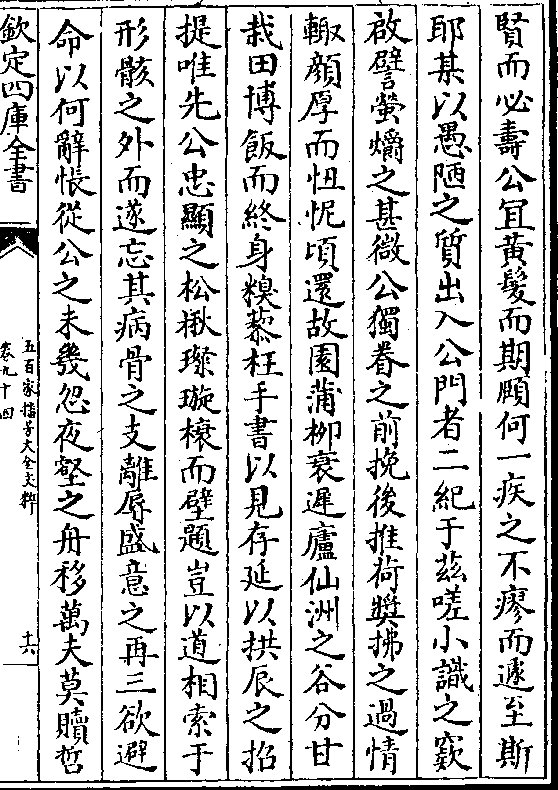 賢而必壽公冝黄髮而期頥何一疾之不瘳而遽至斯
耶某以愚陋之質出入公門者二紀于兹嗟小識之窾
啟譬螢爝之甚微公獨眷之前挽後推荷奬拂之過情
輙顔厚而忸怩頃還故園蒲柳衰遲廬仙洲之谷分甘
我田博飯而終身糗藜枉手書以見存延以拱辰之招
提唯先公忠顯之松楸璨璇榱而壁題豈以道相索于
形骸之外而遂忘其病骨之支離辱盛意之再三欲避
命以何辭悵從公之未幾怨夜壑之舟移萬夫莫贖哲
欽定四庫全書
五百家播芳大全文粹
卷九十四
十六